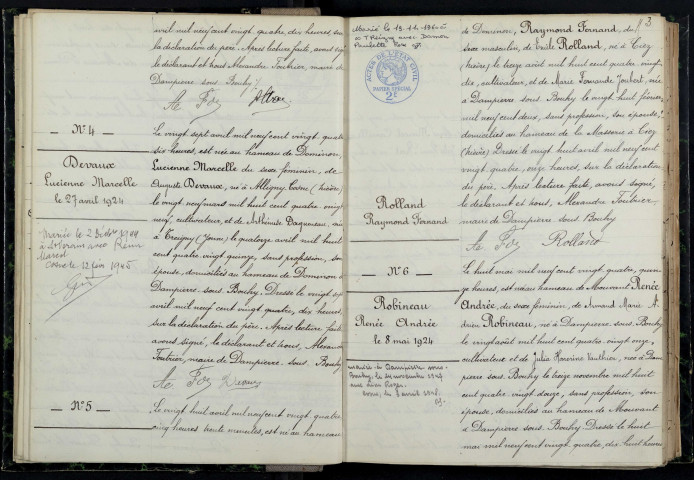 avril mil neuf cent vingt quatre, dix heures, sur
la déclaration du père. Après lecture faite, avons signé
le déclarant et nous Alexandre Toutrier, maire de
Dampierre sous Bouhy.
N° 4
Devaux
Lucienne Marcelle
le 27 avril 1924
Le vingt sept avril mil neuf cent vingt quatre
six heures, est née au hameau de Dominon,
Lucienne Marcelle du sexe féminin, de
Auguste Devaux, né à Alligny Cosne (Nièvre)
le vingt neuf mars mil huit cent quatre vingt
neuf, cultivateur, et de Daguineau, née
à Treigny (Yonne) le quatorze avril mil huit
cent quatre vingt quinze, sans profession, son
épouse, domiciliés au hameau de Dominon à
Dampierre sous Bouhy. Dressé le vingt
avril mil neuf cent vingt quatre, dix heures,
sur la déclaration du père. Après lecture faite
avons signé, le déclarant et nous, Alexandre
Toutrier, maire de Dampierre sous Bouhy
Devaux
N° 5
Le vingt huit avril mil neuf cent vingt quatre
cinq heures trente minutes, est né au hameau
3
Marié le 13.11.1945
à Treigny avec
Paulette
ACTES DE L'ETAT CIVIL
PAPIER SPECIAL
2e
Rolland
Raymond Fernand
de Dominon, Raymond Fernand, du
sexe masculin, de Emile Rolland, né à Ciez
(Nièvre) le treize août mil huit cent quatre vingt
dix, cultivateur, et de Marie Fernande Joubert, née
à Dampierre sous Bouhy le vingt huit février
mil neuf cent deux, sans profession, son épouse,
domiciliés au hameau de la à Ciez
(Nièvre) Dressé le vingt huit avril mil neuf cent
vingt quatre, onze heures, sur la déclaration
du père. Après lecture faite, avons signé,
le déclarant et nous, Alexandre Toutrier,
maire de Dampierre sous Bouhy
Rolland
N° 6
Robineau
Renée Andrée
le 8 mai 1924
Mariée à Dampierre sous
Bouhy, le novembre
avec Léon
Le huit mai mil neuf cent vingt quatre, quin
ze heures, est née au hameau de Mouvant Renée
Andrée, du sexe féminin, de Armand Marie A
drien Robineau, né à Dampierre sous Bouhy
le vingt août mil huit cent quatre vingt onze,
cultivateur et de Julia Vauthier, née à Dam
pierre sous Bouhy le treize novembre mil huit
cent quatre vingt douze, sans profession, son
épouse, domiciliés au hameau de Mouvant
à Dampierre sous Bouhy. Dressé le huit
mai mil neuf cent vingt quatre, dix huit heures